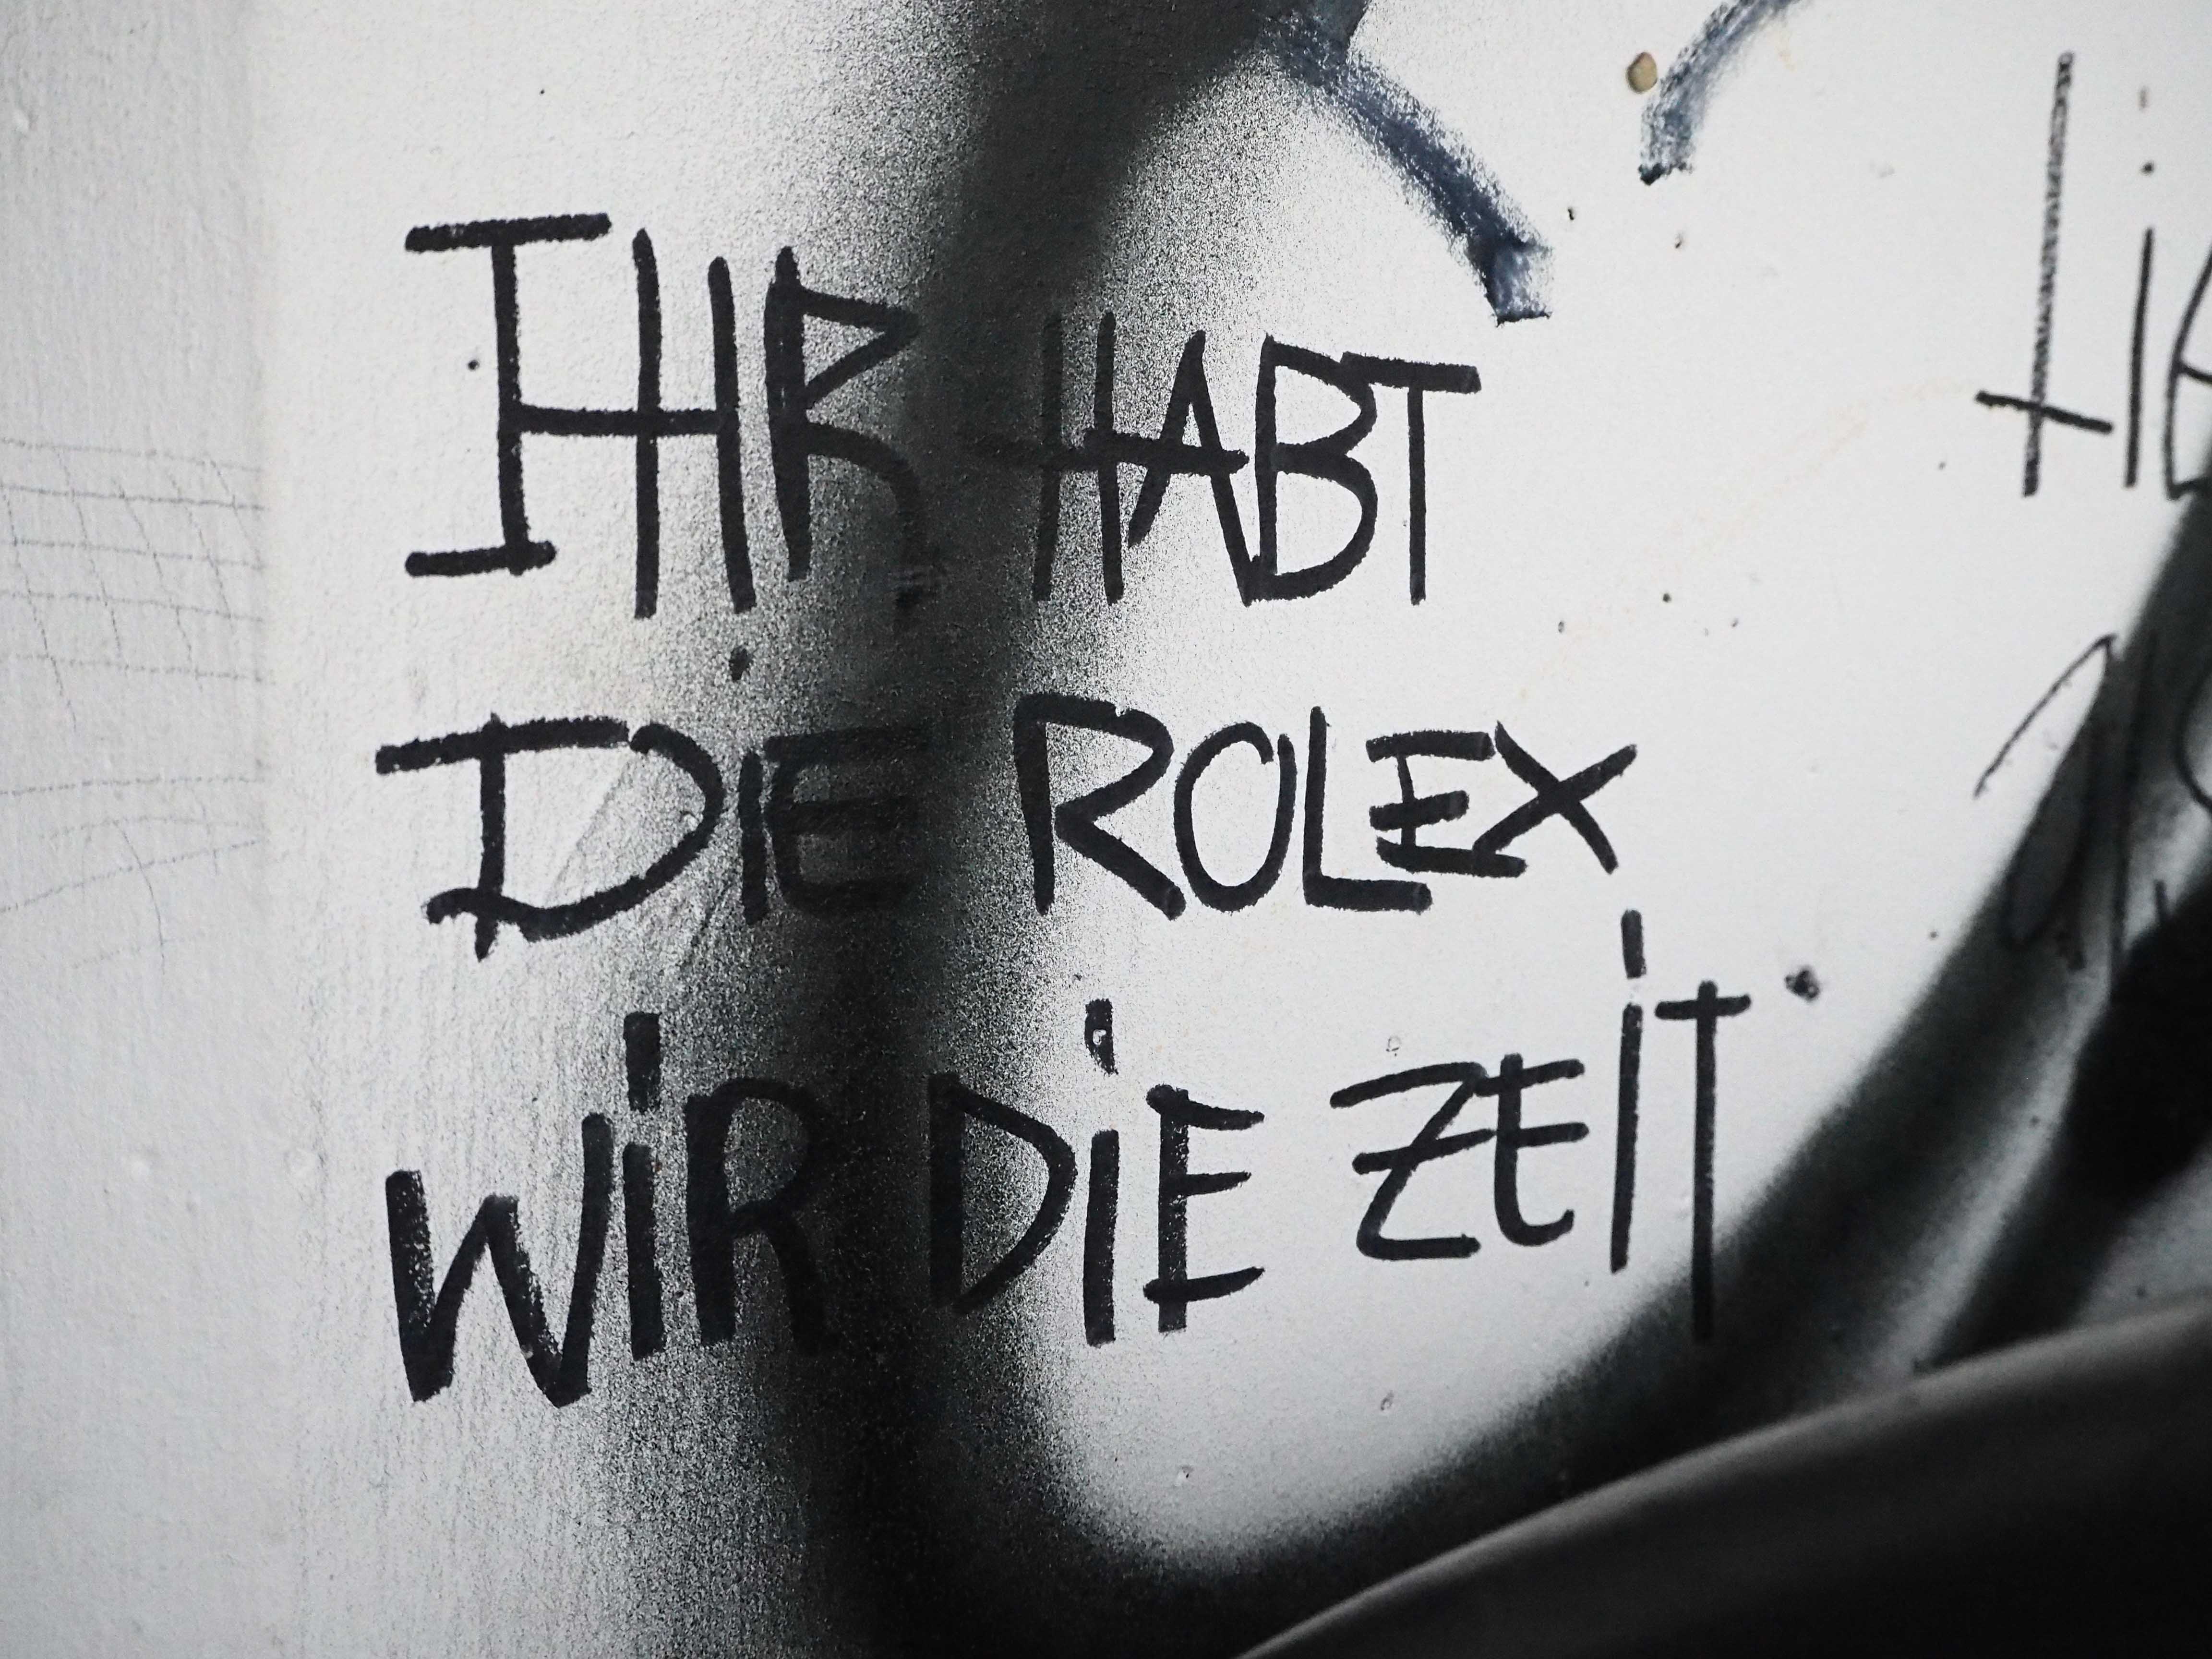 IHR HABT
DIE ROLEX
WiR DiE ZEiT